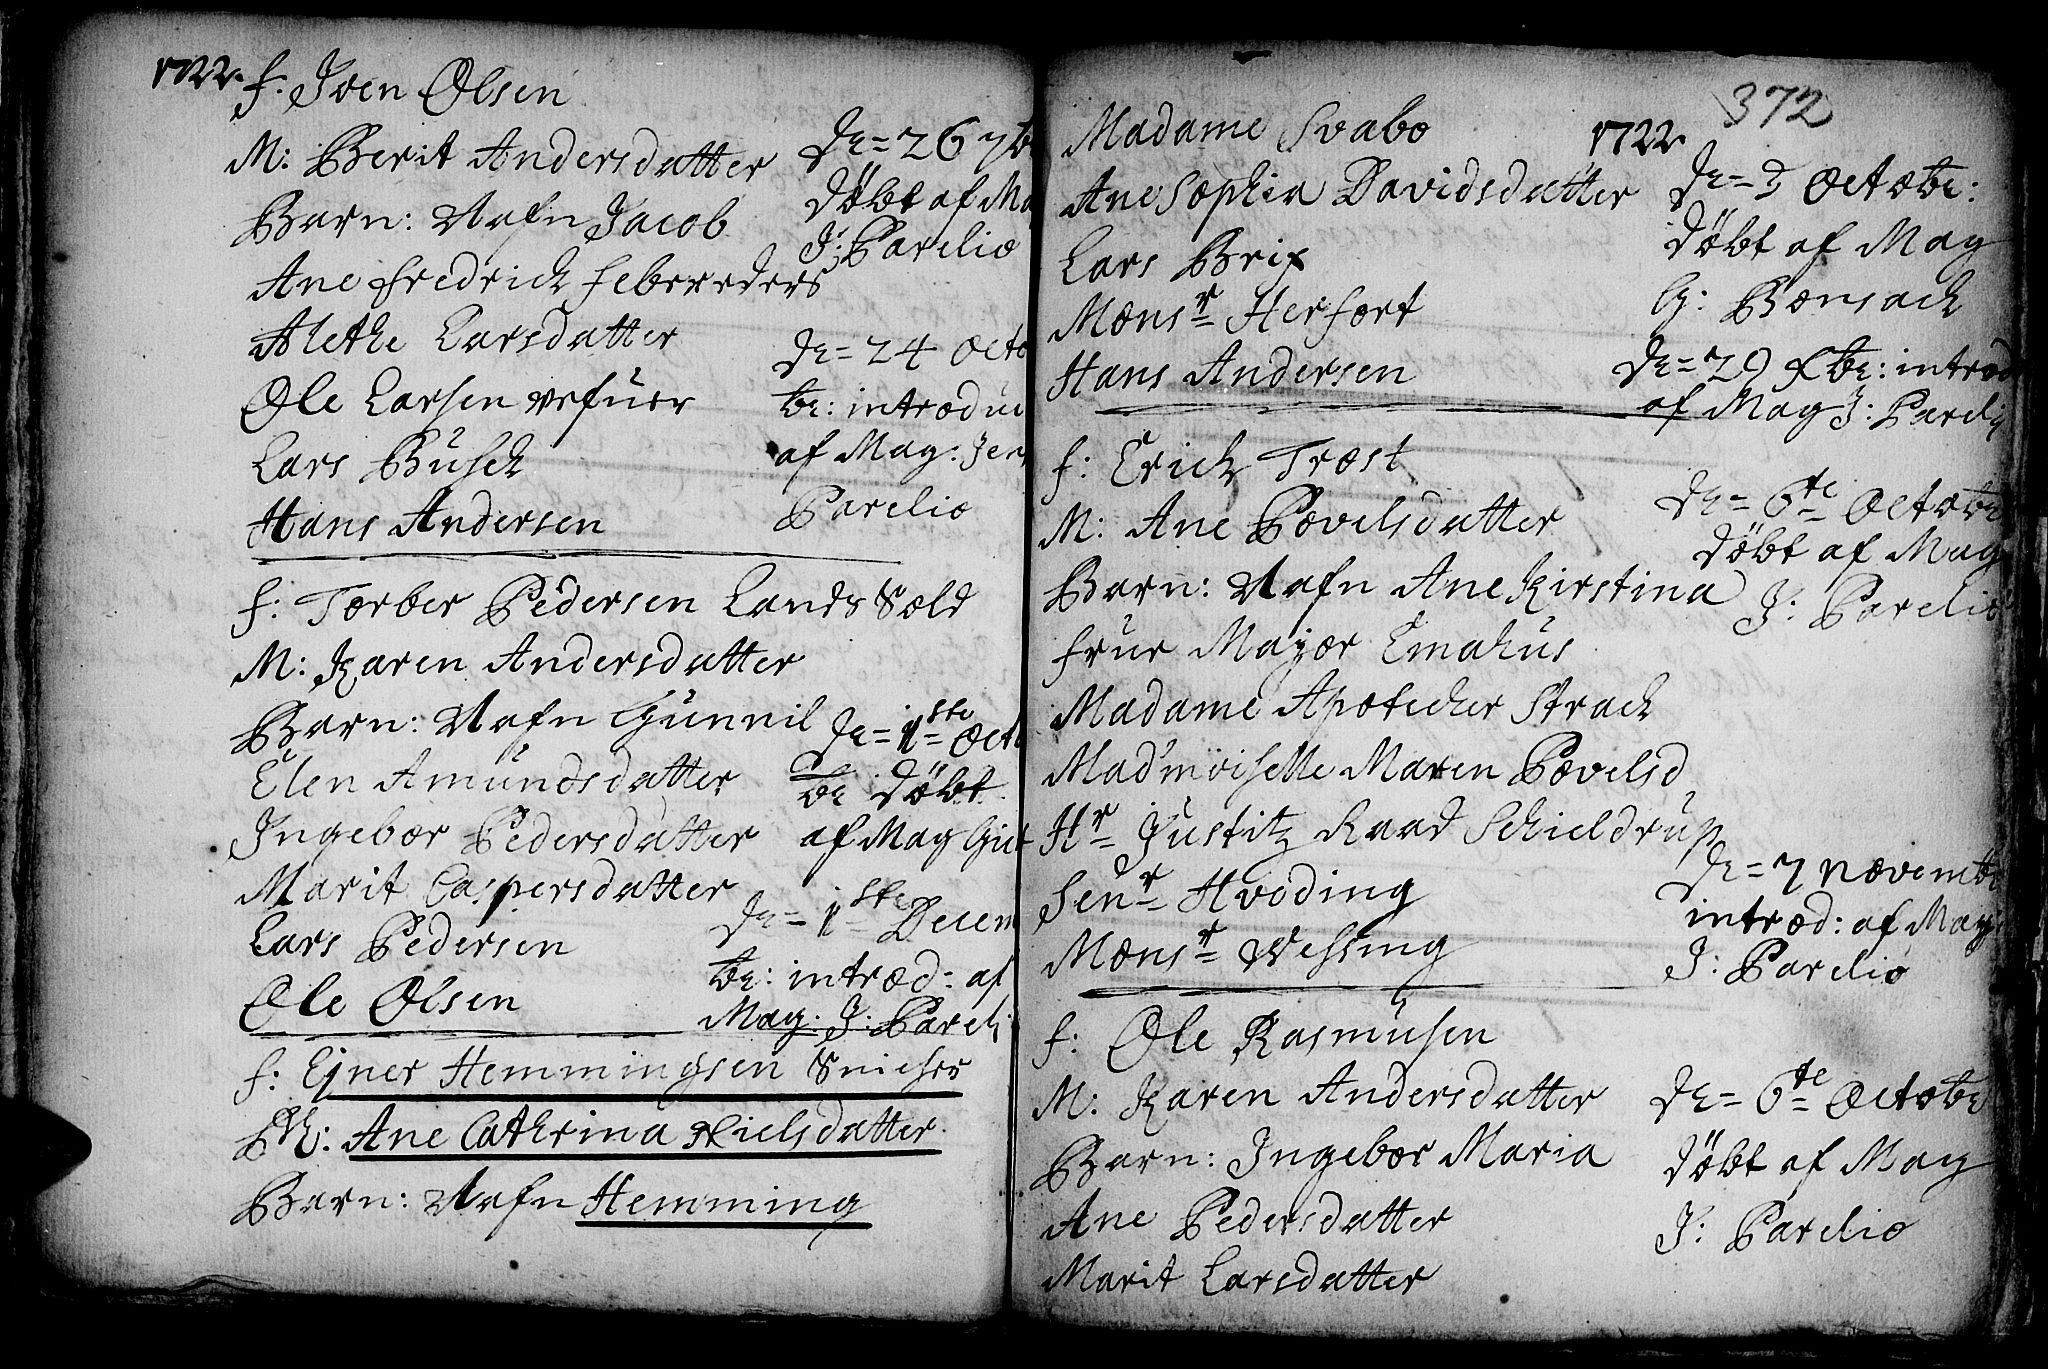 1722.
f: Iven Olsen
M: Berit Andersdatter
Barn: Nafn Jacob
Ane Fredrich Feberøders
Alethe Larsdatter
Ole Larsen
Lars Busch
Hans Andersen
d: = 26 7b
døbt af Ma
J: Parelio
d: = 24 Octo
br: introduc
af Mag: Jen
Parelio
f: Torber Pedersen Lands Sold
M: Karen Andersdatter
Barn: Nafn Gunnil
Elen Amundsdatter
Ingebor Pedersdatter
Marit Caspersdatter
Lars Pedersen
Ole Olsen
d: = 1ste Octo
br døbt
af Mag Giert
d: = 1ste Decem
br: introd: af
Mag: J: Pareli
f: Ejner Hemmingsen Snicher
M: Ane Cathrina Nielsdatter.
Barn: Nafn Hemming
372
1722
Madame Svabo
Ane Sophia Davidsdatter
Lars Brix
Monsr Herfort
Hans Andersen
d: = 3 Octobr:
døbt af Mag
G: Bonsach
d: = 29 Xbr: introd
af Mag J: Pareli
f: Erich Trost
M: Ane Povelsdatter
Barn: Nafn Ane Kirstina
Frur Mayor Emahus
Madame Apotecher Strach
Mad'moiselle Maren Povelsd
Hr Justitz Raad Schieldrup
Senr Hveding
Monsr Wessing
d: = 6te Octobr
døbt af Mag
J: Parelio
d: = 7 Novembr
introd: af Mag
J: Parelio
f: Ole Rasmusen
M: Karen Andersdatter
Barn: Ingebor Maria
Ane Pedersdatter
Marit Larsdatter
d: = 6te Octobr
døbt af Mag
J: Parelio